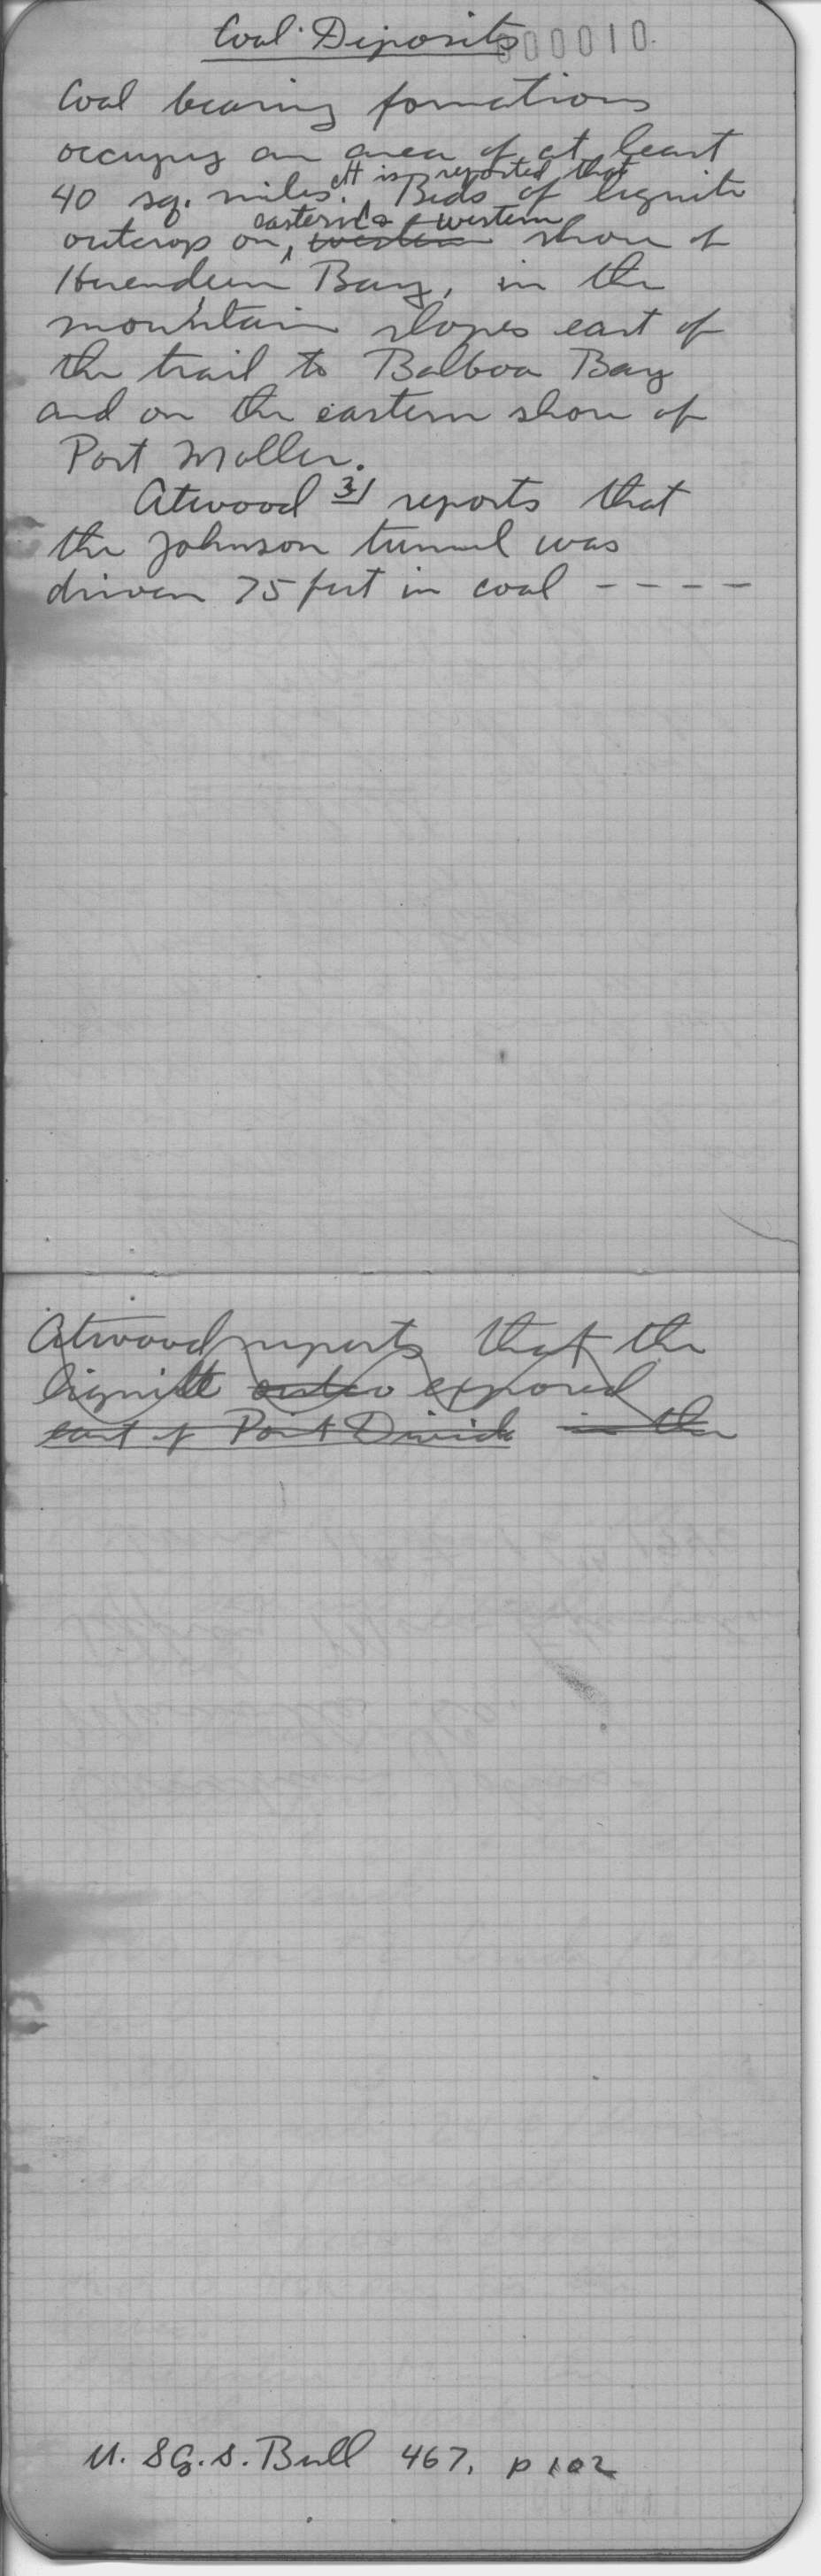 Coal Deposits
000010
Coal bearing formations
occupy an area of at least
It is reported that
40 sq. miles. Beds of lignite
eastern & western
outcrop on western shore of
Herendeen Bay, in the
mountain slopes east of
the trail to Balboa Bay
and on the eastern shore of
Port Moller.
Atwood 3/ reports that
the Johnson tunnel was
driven 75 feet in coal - - - -
Atwood reports that the
lignite outcro exposed
east of Point Divide in the
U.S.G.S. Bull 467, p 102